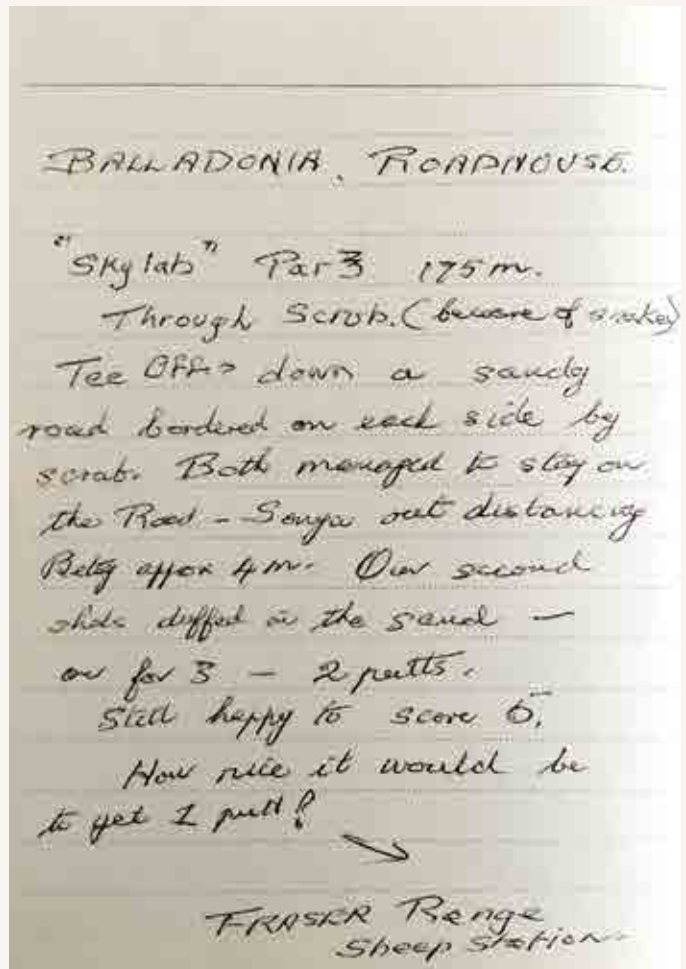 BALLADONIA. ROADHOUSE.
"Skylab" Par 3 175m.
Through Scrub. (beware of snakes)
Tee Off > down a sandy
road bordered on each side by
scrub. Both managed to stay on
the Road - Sonya out distancing
Betty approx 4m. Our second
shots duffed in the sand —
on for 3 — 2 putts.
Still happy to score 5.
How nice it would be
to get 1 putt!
FRASER Range
Sheep Station